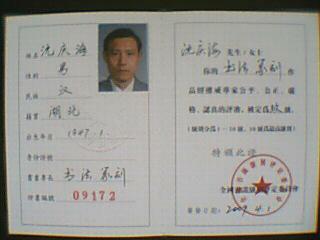 姓名 沈庆海
性别 男
民族 汉
籍贯 湖北
出生年月 1947.1
身份证号
书画专长 书法 篆刻
证书编号 09172
沈庆海 先生/女士
你的 书法 篆刻 作
品经权威专家公平、公正、严
格、认真的评审,被定为 级
(级别分为1—10级,10级为最高级别)
特颁此证
全国
签发日期: 2007.4.1